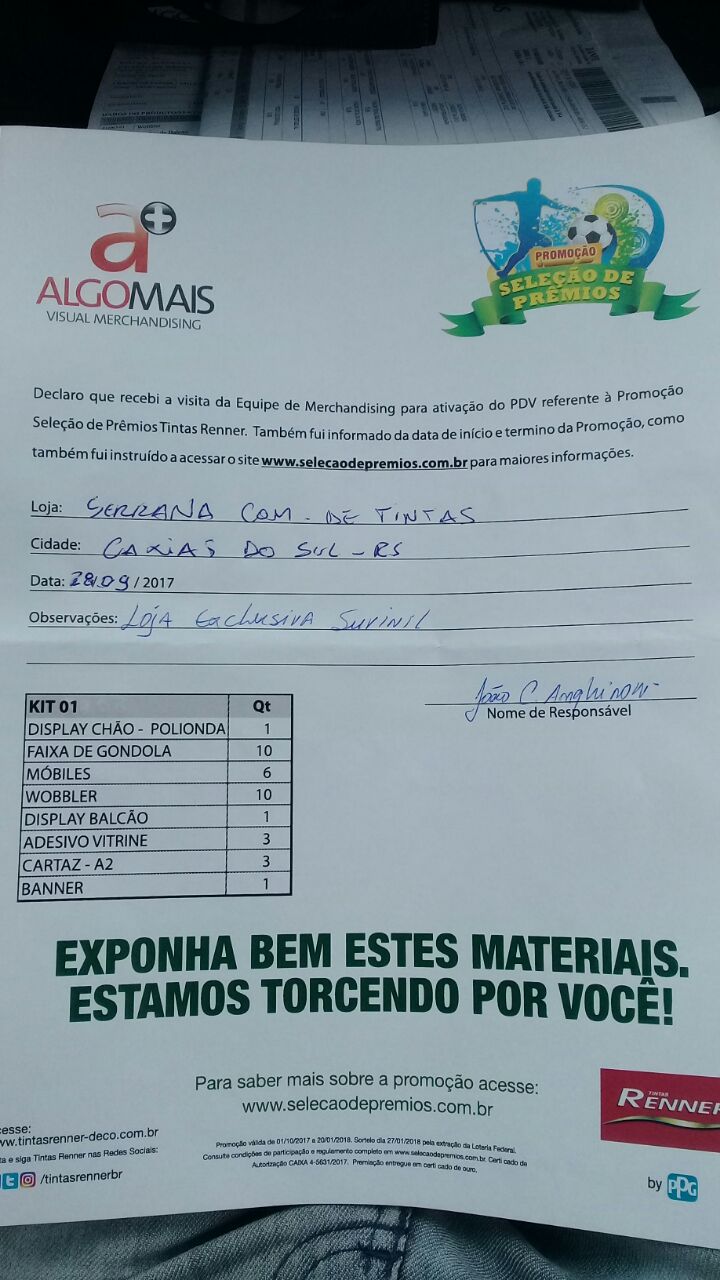 a+
ALGOMAIS
VISUAL MERCHANDISING
PROMOÇÃO
SELEÇÃO DE
PRÊMIOS
Declaro que recebi a visita da Equipe de Merchandising para ativação do PDV referente à Promoção
Seleção de Prêmios Tintas Renner. Também fui informado da data de início e termino da Promoção, como
também fui instruído a acessar o site www.selecaodepremios.com.br para maiores informações.
Loja: SERRANA COM. DE TINTAS
Cidade: CAXIAS DO SUL - RS
Data: 28.09 / 2017
Observações: LOJA EXCLUSIVA SUVINIL
João C
Nome de Responsável
KIT 01 Qt
DISPLAY CHÃO - POLIONDA 1
FAIXA DE GONDOLA 10
MÓBILES 6
WOBBLER 10
DISPLAY BALCÃO 1
ADESIVO VITRINE 3
CARTAZ - A2 3
BANNER 1
EXPONHA BEM ESTES MATERIAIS.
ESTAMOS TORCENDO POR VOCÊ!
Para saber mais sobre a promoção acesse:
www.selecaodepremios.com.br
TINTAS
RENNER
cesse:
ww.tintasrenner-deco.com.br
ta e siga Tintas Renner nas Redes Sociais:
/tintasrennerbr
Promoção válida de 01/10/2017 e 20/01/2018. Sorteio dia 27/01/2018 pela extração da Loteria Federal.
Consulte condições de participação e regulamento completo em www.selecaodepremios.com.br. Certi cado de
Autorização CAIXA 4-5631/2017. Premiação entregue em certi cado de ouro.
by PPG